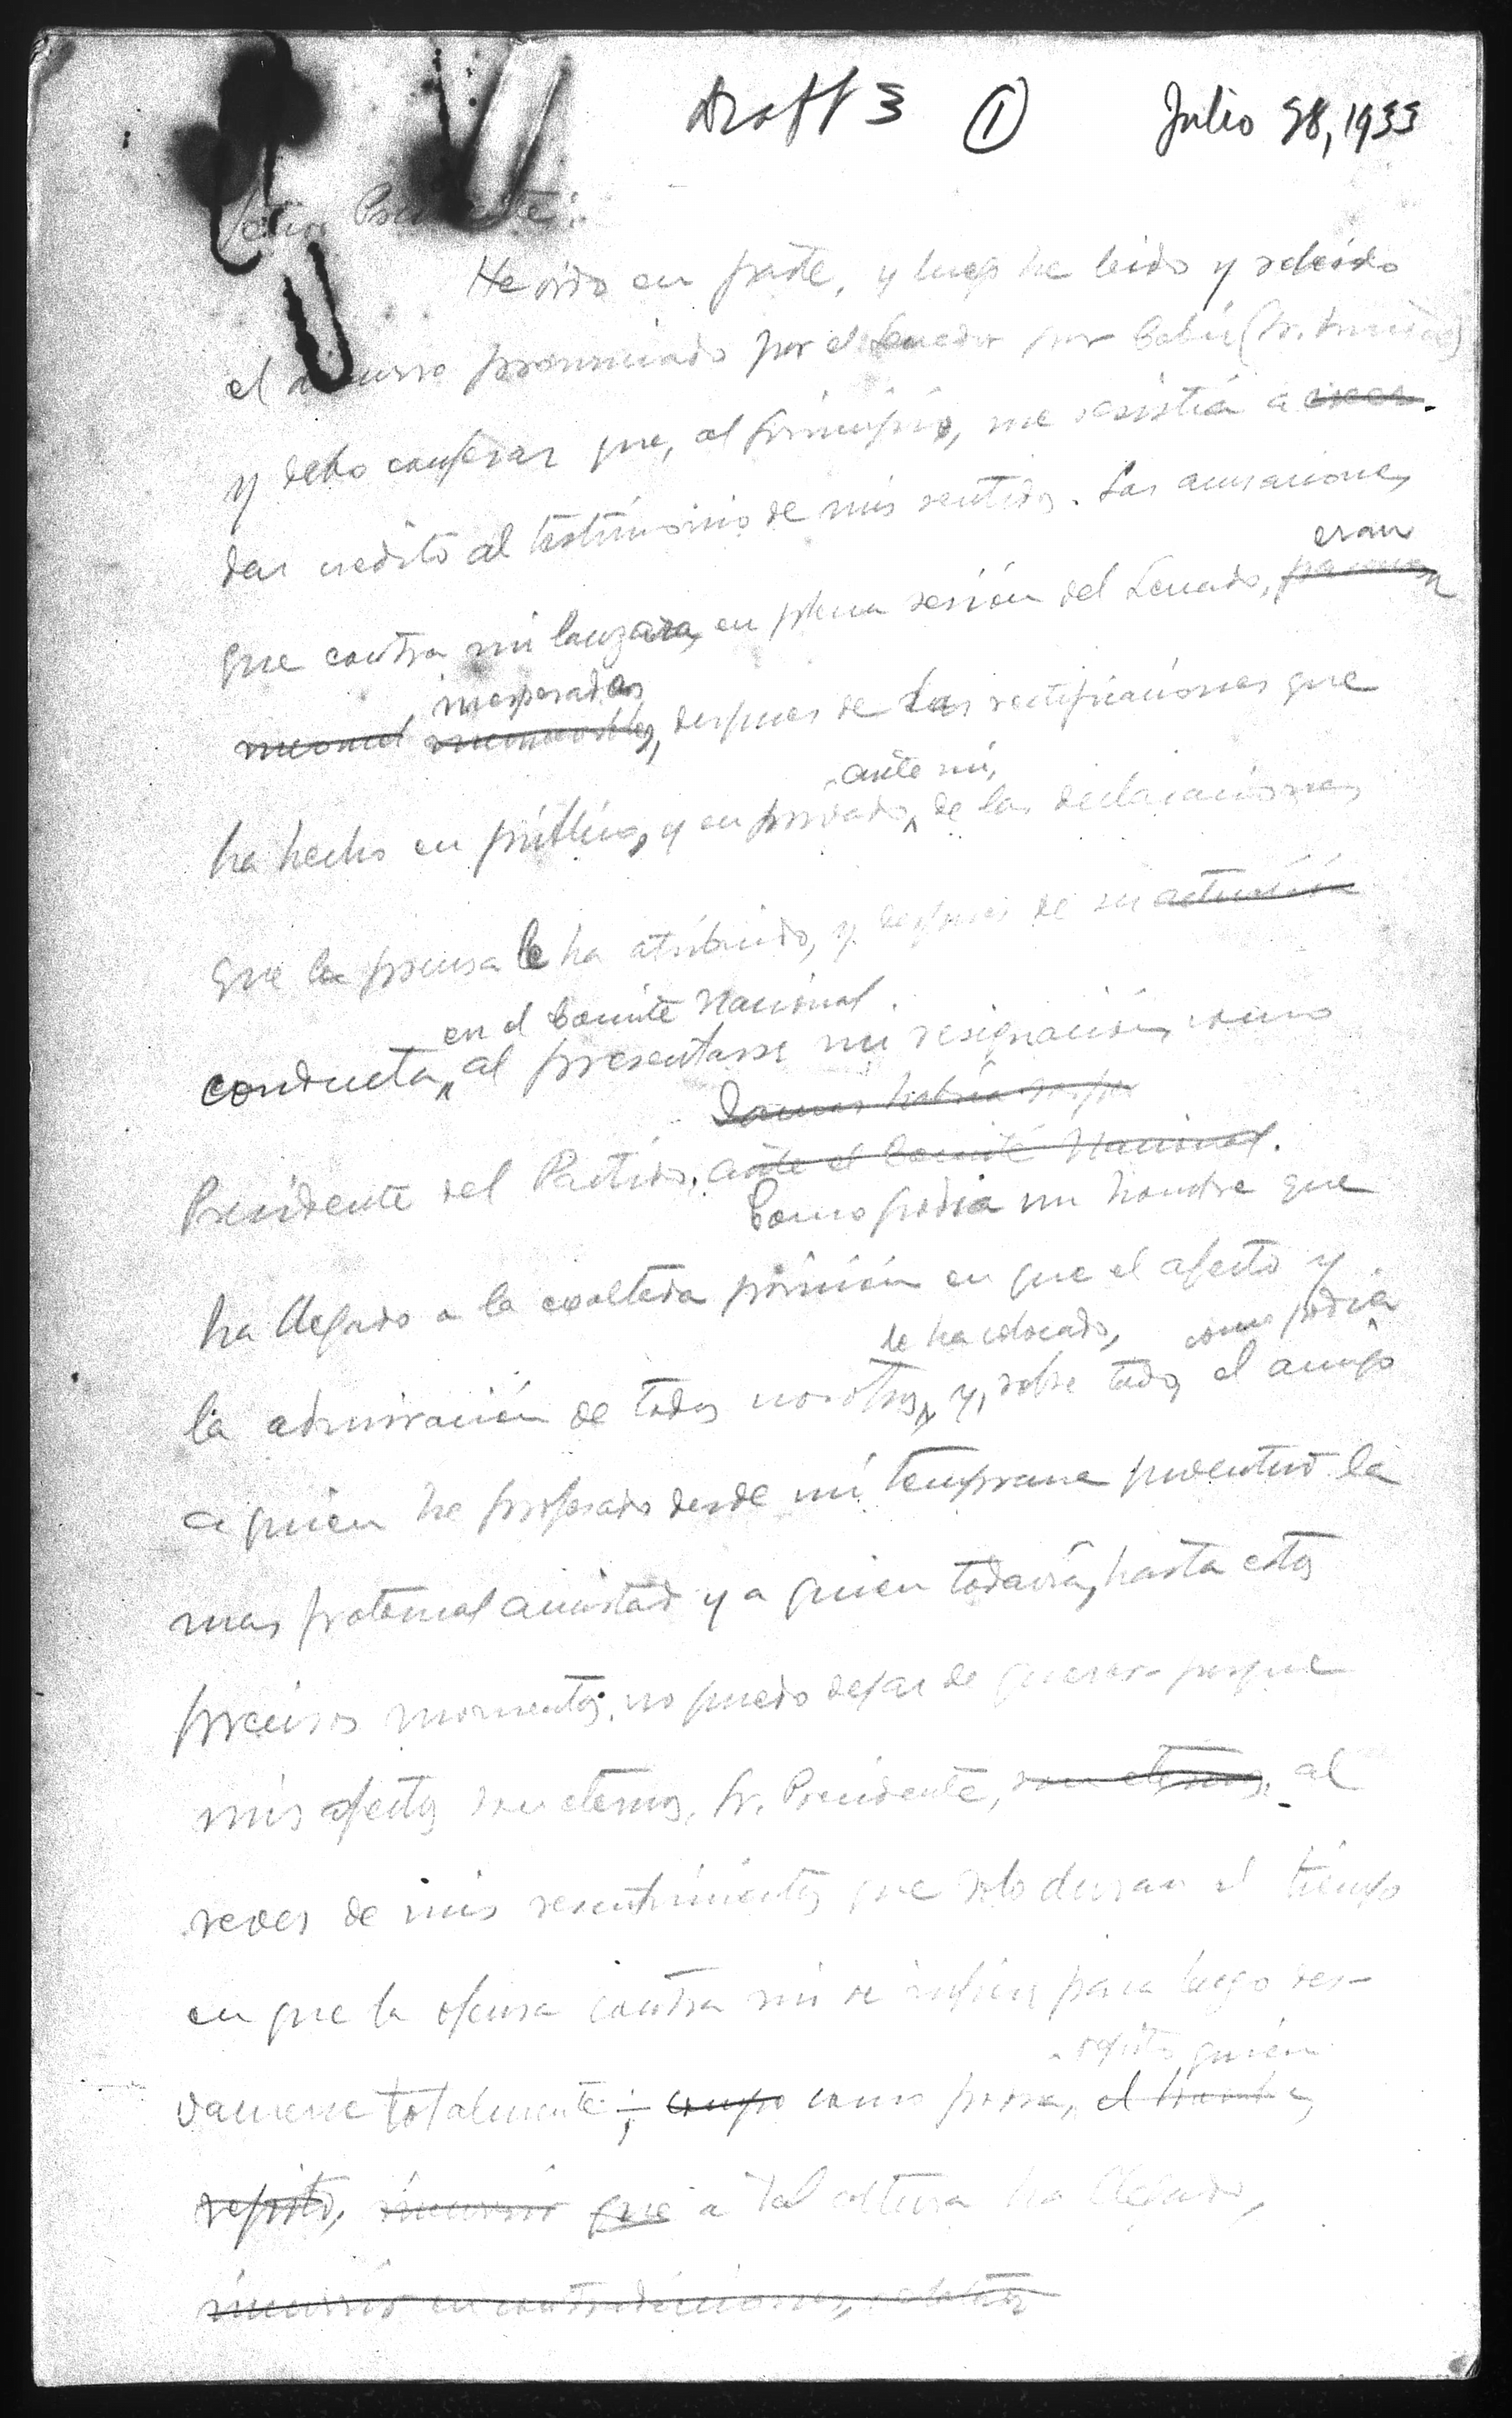 Draft 3 ① Julio 28, 1933
Señor Presidente:
He oido en parte, y luego he leido y releido
el discurso pronunciado por el Senador por Cebú (Sr.
y debo confesar que, al principio, me resistía a creer
dar credito al testimonio de mis sentidos. Las acusaciones
eran
que contra mi lanzara, en plena sesión del Senado,
inesperadas
despues de las rectificaciones que
ante mi,
ha hecho en público, y en privado, de las declaraciones
que la prensa le ha atribuido, y despues de su actuación
en el Comité Nacional.
conducta, al presentarse mi resignación, como
Presidente del Partido, ante el Comité Nacional.
Como podia un hombre que
ha llegado a la exaltada posición en que el afecto y
le ha colocado, como podia
la admiración de todos nosotros, y, sobre todo, el amigo
a quien he profesado desde mi temprana juventud la
mas fraternal amistad y a quien todavía, hasta estos
precisos momentos, no puedo dejar de querer porque
mis afectos son eternos, Sr. Presidente, son eternos, al
reves de mis resentimientos que solo duran el tiempo
en que la ofensa contra mi se inflige para luego des-
vanecerse totalmente;
repito, quien
como podia, el hombre,
repito, incurrir que a tal altura ha llegado,
incurrir en contradicciones,